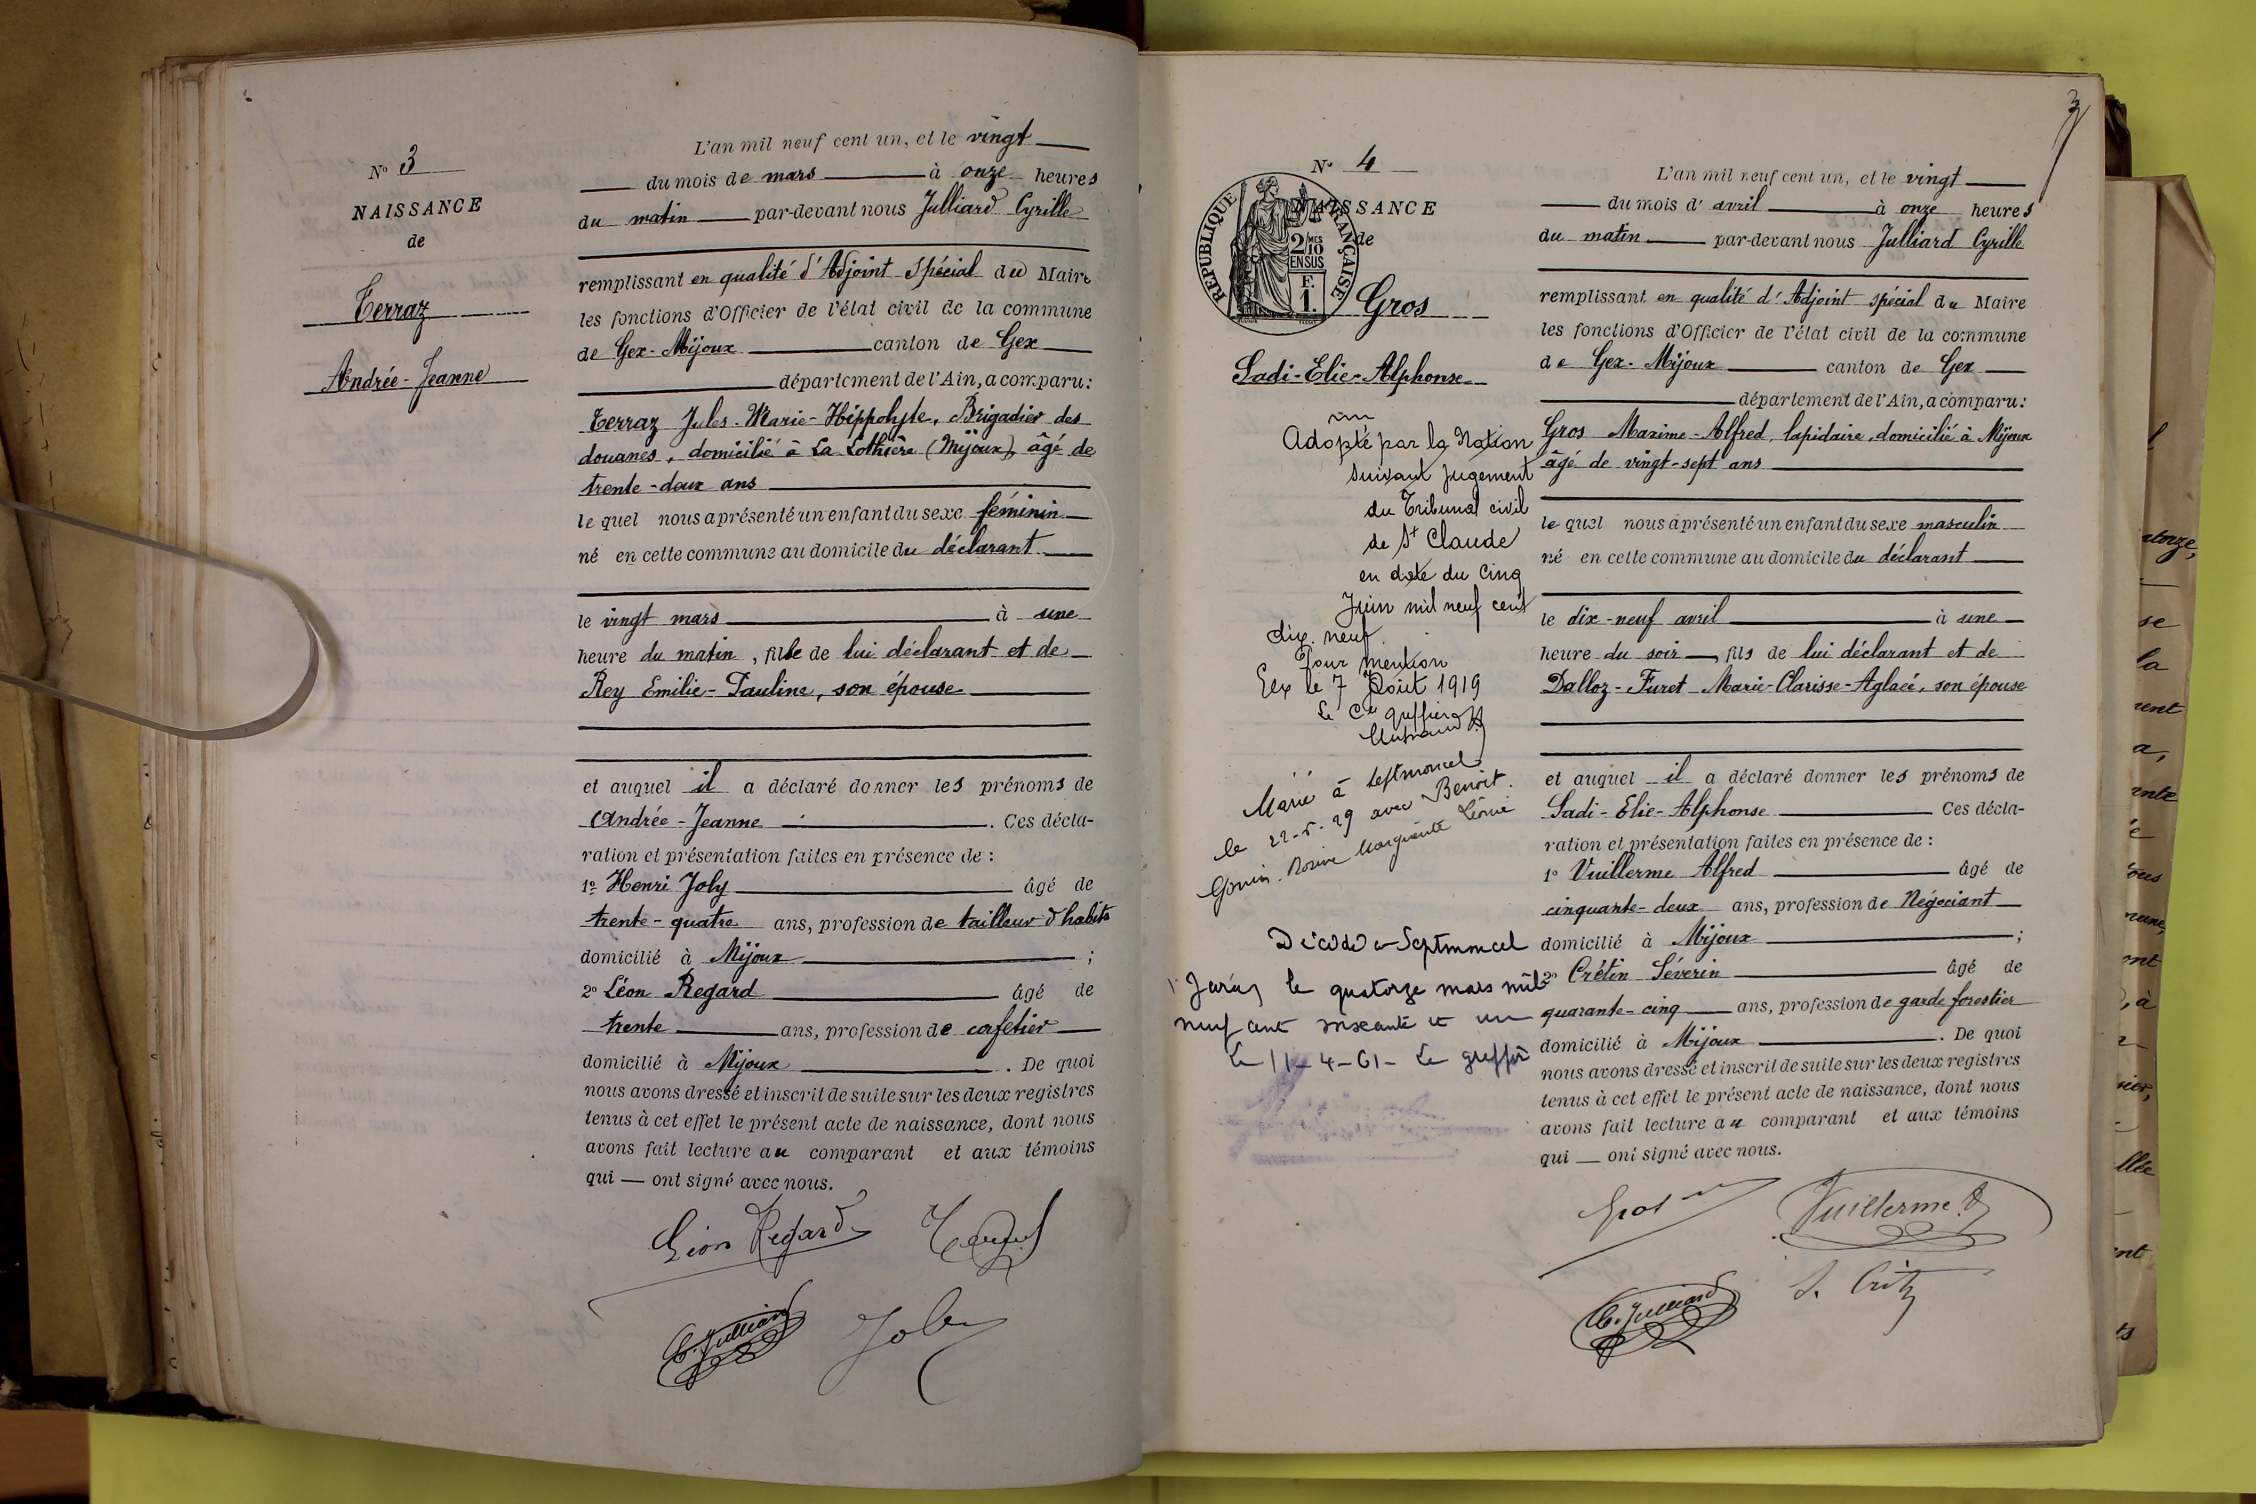 N° 3
NAISSANCE
de
Terraz
Andrée-Jeanne
L'an mil neuf cent un, et le vingt
du mois de mars à onze heures
du matin par-devant nous Julliard Cyrille
remplissant en qualité d'Adjoint spécial du Maire
les fonctions d'Officier de l'état civil de la commune
de Gex-Mijoux canton de Gex
département de l'Ain, a comparu:
Terraz Jules-Marie-Hippolyte, Brigadier des
douanes, domicilié à La Lothière (Mijoux), âgé de
trente-deux ans
le quel nous a présenté un enfant du sexe féminin
né en cette commune au domicile du déclarant
le vingt mars à une
heure du matin, fille de lui déclarant et de
Rey Emilie-Pauline, son épouse
et auquel il a déclaré donner les prénoms de
Andrée-Jeanne. Ces décla-
ration et présentation faites en présence de :
1° Henri Joly âgé de
trente-quatre ans, profession de tailleur d'habits
domicilié à Mijoux ;
2° Léon Regard âgé de
trente ans, profession de cafetier
domicilié à Mijoux. De quoi
nous avons dressé et inscrit de suite sur les deux registres
tenus à cet effet le présent acte de naissance, dont nous
avons fait lecture au comparant et aux témoins
qui — ont signé avec nous.
Léon Regard
C. Julliard Joly
3
N° 4
NAISSANCE
de
RÉPUBLIQUE FRANÇAISE
2/10 MES
EN SUS
F.
1.
Gros
Sadi-Elie-Alphonse
Adopté par la Nation
suivant jugement
du Tribunal civil
de St Claude
en date du cinq
Juin mil neuf cent
dix neuf
Pour mention
Gex le 7 Août 1919
Le Cis greffier
Marié à Septmoncel
le 22-5-29 avec Benoit
Gonin Rosine Marguerite Léonie
Décédé à Septmoncel
Jura, le quatorze mars mil
neuf cent soixante et un
Le 11-4-61- Le greffier
L'an mil neuf cent un, et le vingt
du mois d'avril à onze heures
du matin par-devant nous Julliard Cyrille
remplissant en qualité d'Adjoint spécial du Maire
les fonctions d'Officier de l'état civil de la commune
de Gex-Mijoux canton de Gex
département de l'Ain, a comparu:
Gros Maxime-Alfred, lapidaire, domicilié à Mijoux
âgé de vingt-sept ans
le quel nous a présenté un enfant du sexe masculin
né en cette commune au domicile du déclarant
le dix-neuf avril à une
heure du soir, fils de lui déclarant et de
Dalloz-Furet Marie-Clarisse-Aglaé, son épouse
et auquel il a déclaré donner les prénoms de
Sadi-Elie-Alphonse Ces décla-
ration et présentation faites en présence de :
1° Vuillerme Alfred âgé de
cinquante-deux ans, profession de Négociant
domicilié à Mijoux ;
2° Crétin Séverin âgé de
quarante-cinq ans, profession de garde forestier
domicilié à Mijoux. De quoi
nous avons dressé et inscrit de suite sur les deux registres
tenus à cet effet le présent acte de naissance, dont nous
avons fait lecture au comparant et aux témoins
qui — ont signé avec nous.
Gros Vuillerme A
C. Julliard